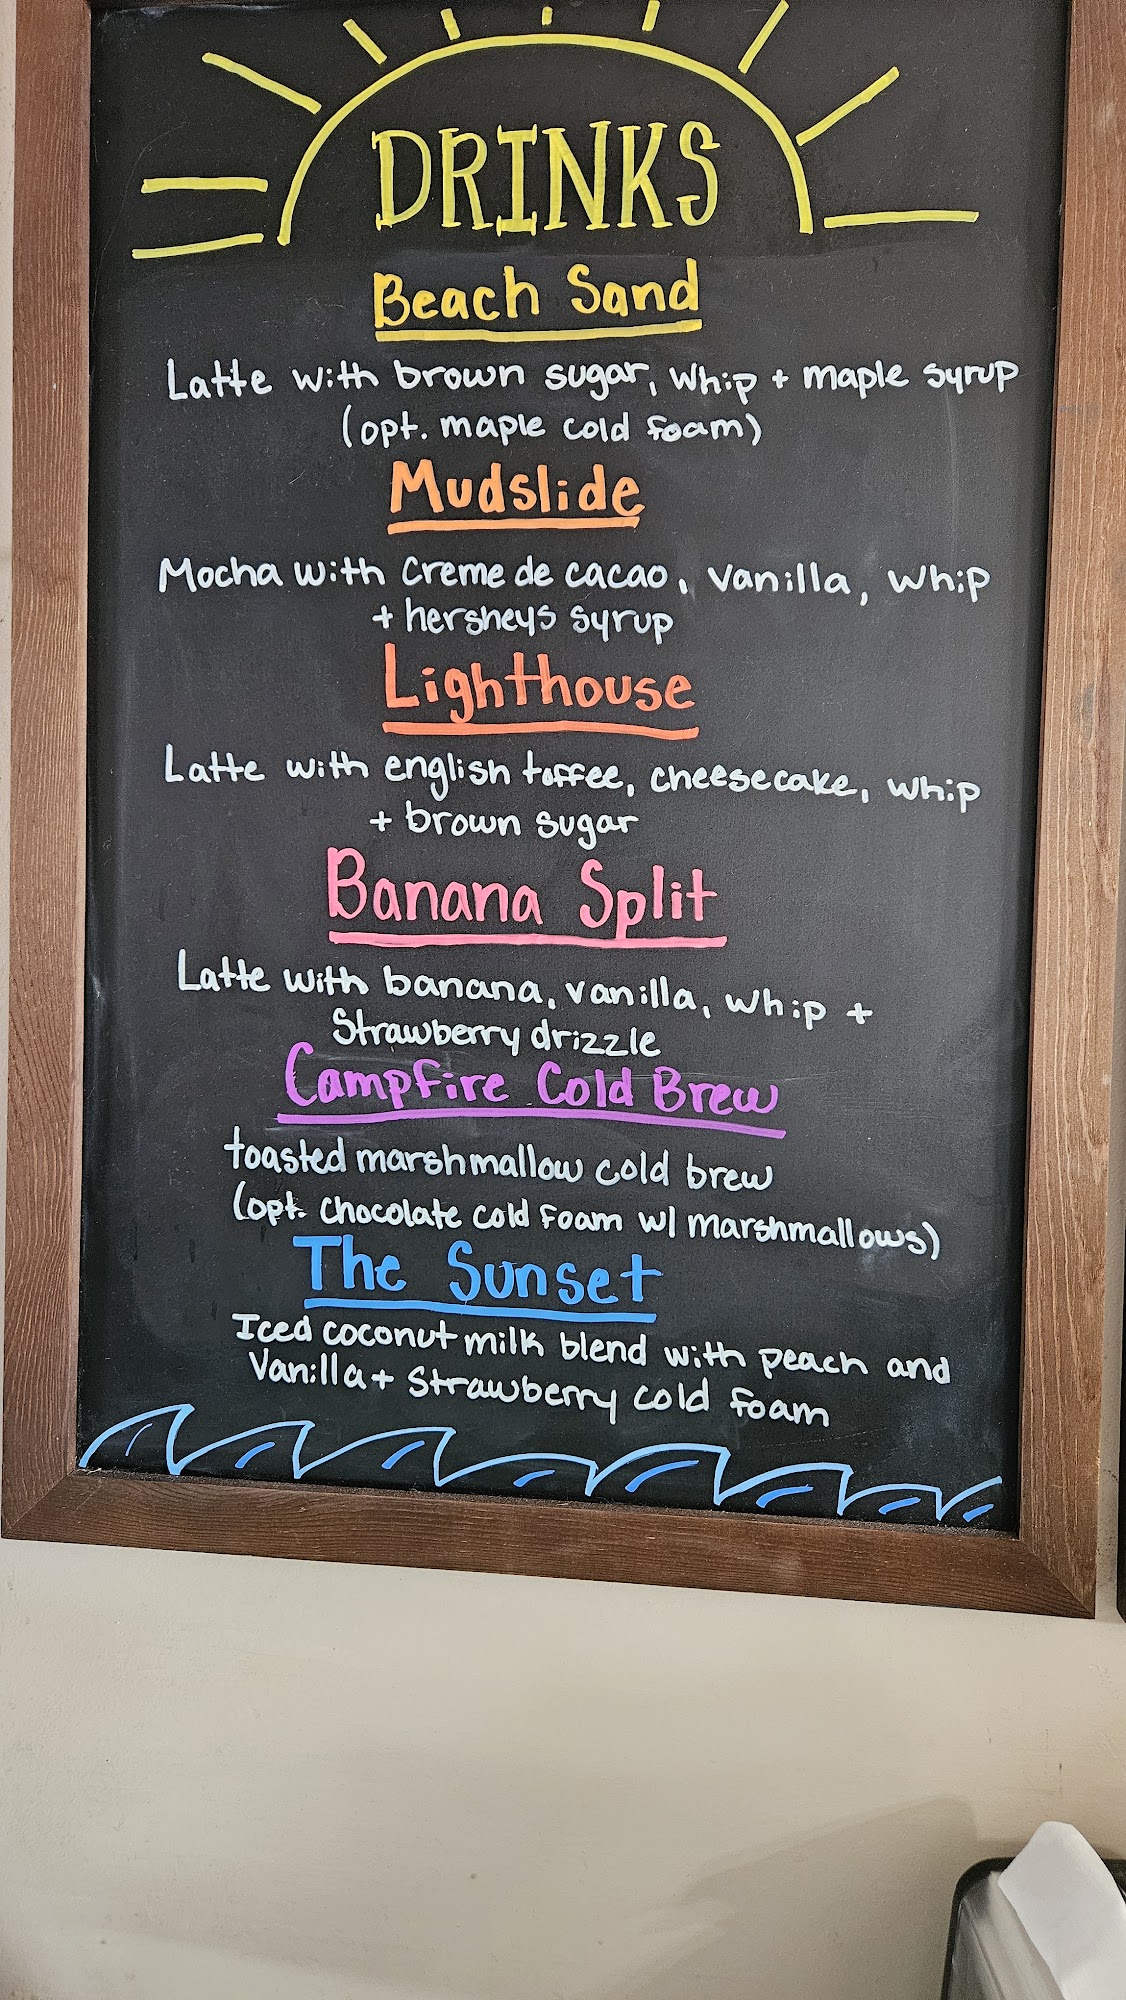 DRINKS
Beach Sand
Latte with brown sugar, whip + maple syrup
(opt. maple cold foam)
Mudslide
Mocha with Creme de cacao, Vanilla, whip
+ hersheys syrup
Lighthouse
Latte with english toffee, cheesecake, whip
+ brown sugar
Banana Split
Latte with banana, vanilla, whip +
Strawberry drizzle
Campfire Cold Brew
toasted marshmallow cold brew
(opt. chocolate cold foam w/ marshmallows)
The Sunset
Iced coconut milk blend with peach and
Vanilla + Strawberry cold foam